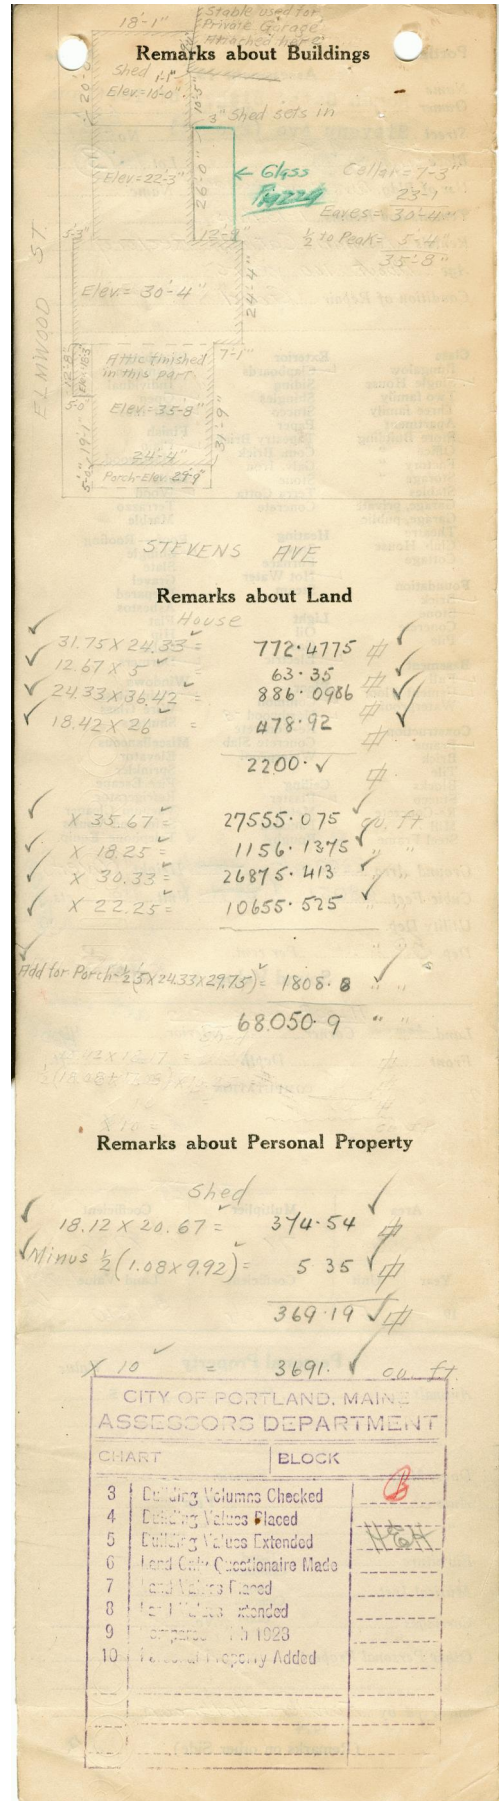 18'-1"
Stable used for
Private Garage
Attached here
Remarks about Buildings
Shed 1'-1"
Elev=10'-0"
20'-8"
10'-5"
3" Shed sets in
Elev=22'-3"
26'-0"
← Glass
Piazza
Cellar = 7-3"
23-1"
Eaves = 30'-4"
½ to Peak = 5-4"
35'-8"
5'-3"
12'-9"
ELMWOOD ST.
Elev.= 30'-4"
24'-4"
7'-1"
Attic finished
in this part
12'-8"
5'-0"
Elev=35'-8"
31'-9"
19'-1"
24'-4"
5'-0"
Porch-Elev 29'-9"
STEVENS AVE
Remarks about Land
House
31.75 X 24.33 = 772.4775
12.67 X 5 = 63.35
24.33 X 36.42 = 886.0986
18.42 X 26 = 478.92
2200.
X 35.67 = 27555.075 cu. ft
X 18.25 = 1156.1375 " "
X 30.33 = 26875.413 " "
X 22.25 = 10655.525 " "
Add for Porch-½(5X24.33X29.75) = 1808.8 " "
68.050.9 " "
Remarks about Personal Property
Shed
18.12 X 20.67 = 374.54
Minus ½(1.08X9.92) = 5.35
369.19
X 10 = 3691. cu. ft.
CITY OF PORTLAND, MAINE
ASSESSORS DEPARTMENT
CHART BLOCK
3 Building Volumns Checked B
4 Building Values Placed
5 Building Values Extended HEH
6 Land Only Questionaire Made
7 Land Values Placed
8 Land Values Extended
9 Compared With 1923
10 Personal Property Added